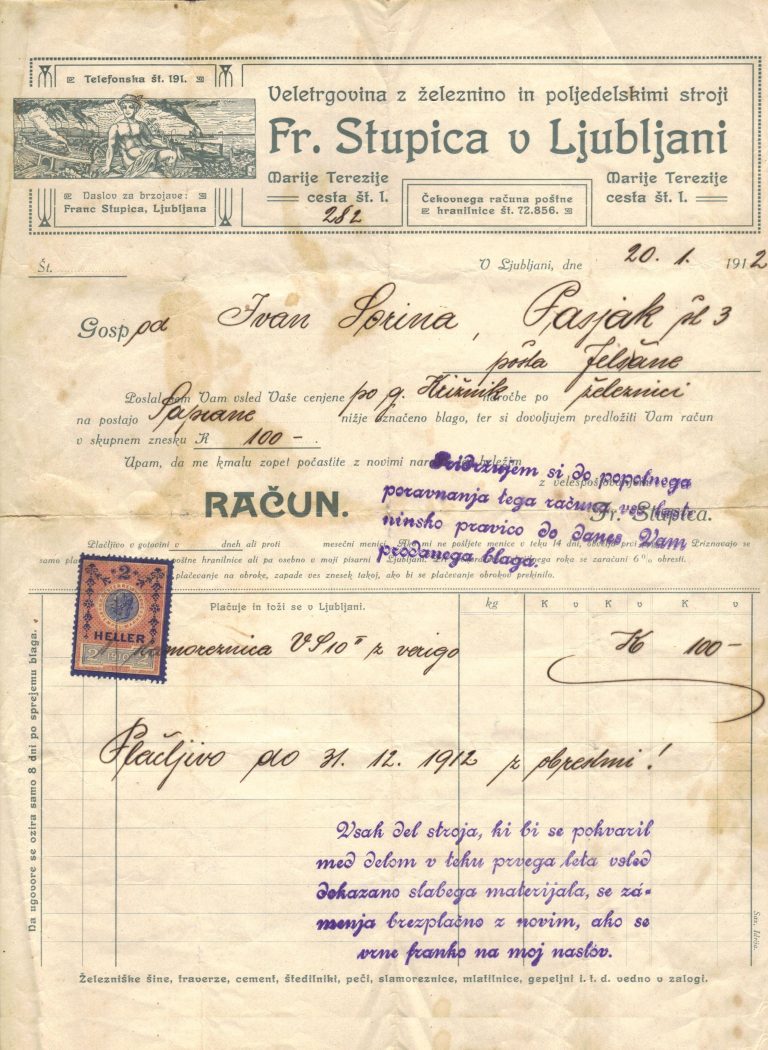 Telefonska št. 191.
Veletrgovina z železnino in poljedelskimi stroji
Fr. Stupica v Ljubljani
Marije Terezije
cesta št. 1.
Čekovnega računa poštne
hranilnice št. 72.856.
Marije Terezije
cesta št. 1.
Naslov za brzojave:
Franc Stupica, Ljubljana
282
Št.
V Ljubljani, dne 20. 1. 1912
Gospod Ivan Sorina, Pasjak št 3
pošta Jelšane
Poslal sem Vam vsled Vaše cenjene po g. Križnik naročbe po železnici
na postajo Sapiane nižje označeno blago, ter si dovoljujem predložiti Vam račun
v skupnem znesku K 100 –
Upam, da me kmalu zopet počastite z novimi
z velespoštovanjem
Fr. Stupica.
Pridržujem si do popolnega
poravnanja tega računa vso last-
ninsko pravico do danes Vam
prodanega blaga.
RAČUN.
Plačljivo v gotovini v dneh ali proti mesečni menici. Ako mi ne pošljete menice v teku 14 dni, Priznavajo se
samo poštne hranilnice ali pa osebno v moji pisarni v Ljubljani. roka se zaračuni 6% obresti.
plačevanje na obroke, zapade ves znesek takoj, ako bi se plačevanje obrokov prekinilo.
2
HELLER
2 1910 2
Plačuje in toži se v Ljubljani.
kg K v K v K v
slamoreznica VS10 z verigo K 100 –
Plačljivo do 31. 12. 1912 z obrestmi!
Vsak del stroja, ki bi se pokvaril
med delom v teku prvega leta vsled
dokazano slabega materijala, se za-
menja brezplačno z novim, ako se
vrne franko na moj naslov.
Da ugovore se ozira samo 8 dni po sprejemu blaga.
Železniške šine, traverze, cement, štedilniki, peči, slamoreznice, mlatilnice, gepeljni i. t. d. vedno v zalogi.